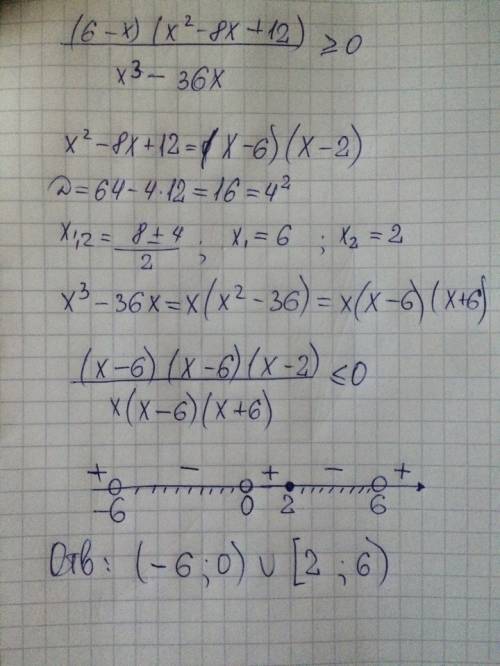 (6-x)(x²-8x+12)/(x³-36x) ≥ 0
x²-8x+12=(x-6)(x-2)
D=64-4·12=16=4²
x₁,₂=(8±4)/2; x₁=6; x₂=2
x³-36x=x(x²-36)=x(x-6)(x+6)
(x-6)(x-6)(x-2)/(x(x-6)(x+6)) ≤0
+ - + - +
-6 0 2 6
Отв: (-6;0)∪[2;6)